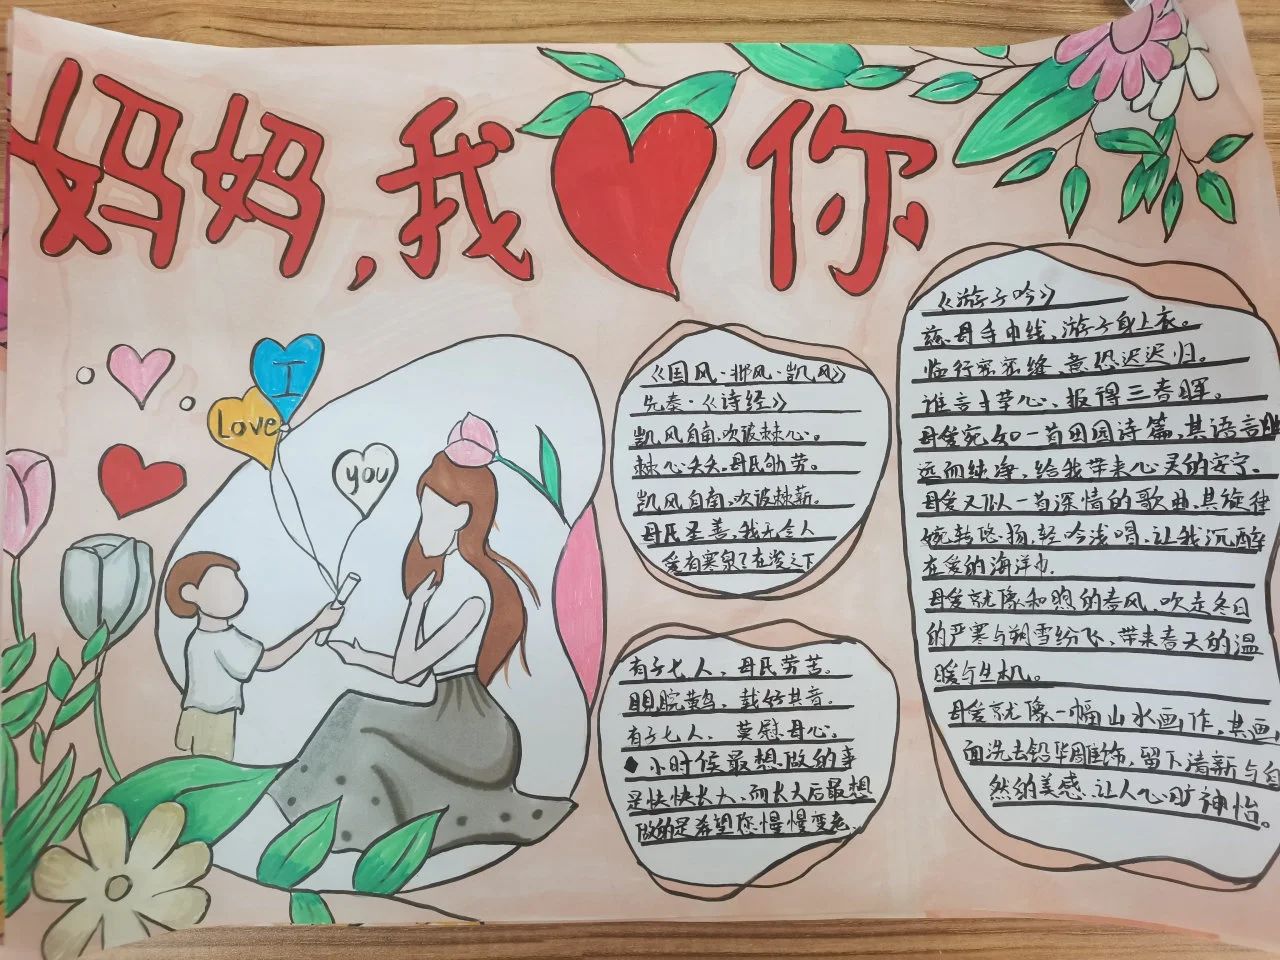 妈妈,我你
I
Love
you
《国风·邶风·凯风》
先秦·《诗经》
凯风自南,吹彼棘心。
棘心夭夭,母氏劬劳。
凯风自南,吹彼棘薪。
母氏圣善,我无令人
爰有寒泉?在浚之下
有子七人、母氏劳苦。
睍睆黄鸟,载好其音。
有子七人、莫慰母心。
◆小时候最想做的事
是快快长大、而长大后最想
做的是希望您慢慢变老.
《游子吟》
慈母手中线,游子身上衣。
临行密密缝、意恐迟迟归。
谁言寸草心、报得三春晖。
母爱宛如一首田园诗篇,其语言
远而纯净,给我带来心灵的安宁、
母爱又似一首深情的歌曲,其旋律
婉转悠扬,轻吟浅唱,让我沉醉
在爱的海洋中.
母爱就像和煦的春风,吹走冬日
的严寒与朔雪纷飞,带来春天的温
暖与生机。
母爱就像一幅山水画作,其画
面洗去铅华雕饰,留下清新与自
然的美感,让人心旷神怡。